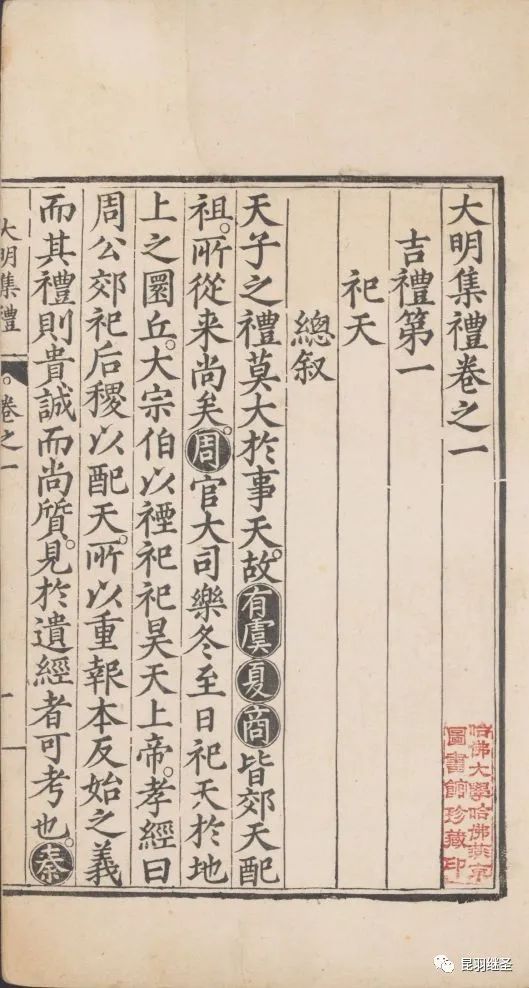 大明集禮卷之一
吉禮第一
祀天
總叙
天子之禮莫大於事天。故有虞夏商皆郊天配
祖。所從来尚矣。周官大司樂冬至日祀天於地
上之圜丘。大宗伯以禋祀祀昊天上帝。孝經曰
周公郊祀后稷以配天。所以重報本反始之義
而其禮則貴誠而尚質。見於遺經者可考也。秦
大明集禮 卷之一
哈佛大學哈佛燕京
圖書館珍藏印
昆羽继圣